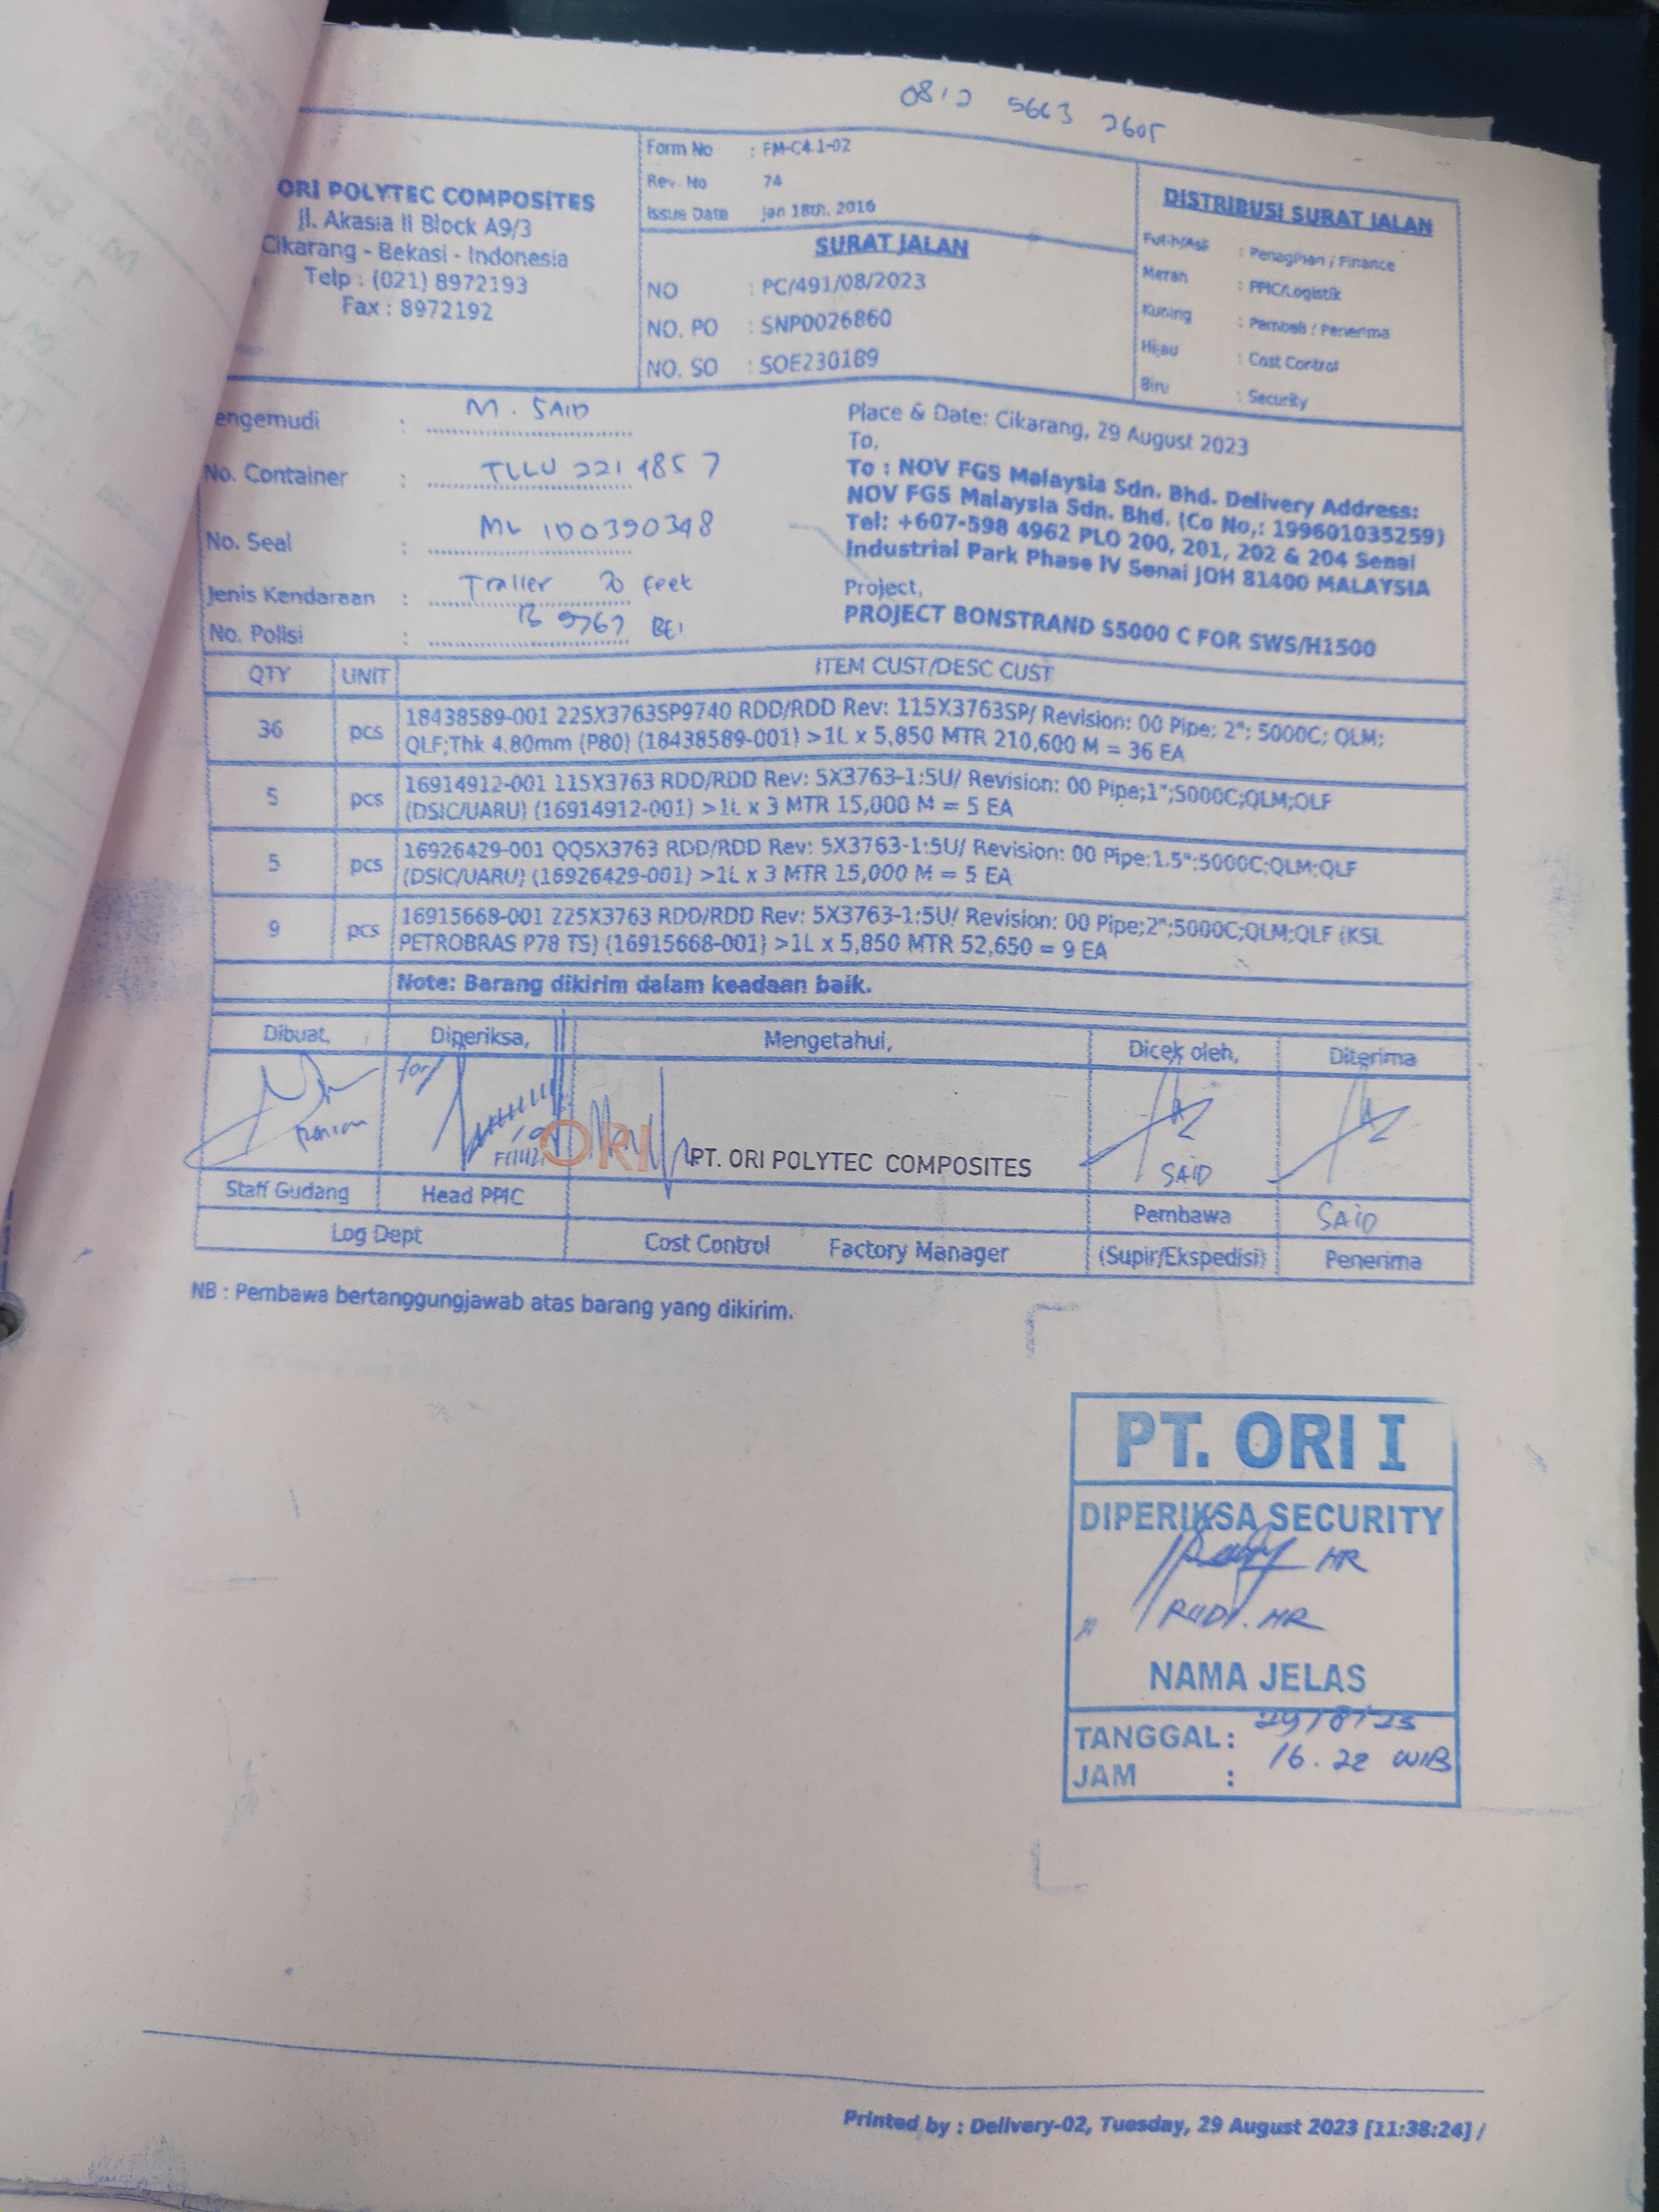 0812 5663 2605
ORI POLYTEC COMPOSITES
Jl. Akasia II Block A9/3
Cikarang - Bekasi - Indonesia
Telp : (021) 8972193
Fax : 8972192
Form No : FM-C4.1-02
Rev. No 74
Issue Date Jan 18th, 2016
SURAT JALAN
NO : PC/491/08/2023
NO. PO : SNP0026860
NO. SO : SOE230189
DISTRIBUSI SURAT JALAN
Putih/Asli : Penagihan / Finance
Merah : PPIC/Logistik
Kuning : Pembeli / Penerima
Hijau : Cost Control
Biru : Security
engemudi : M. SAID
No. Container : TLLU 221 4857
No. Seal : ML 100390348
Jenis Kendaraan : Trailer 20 feet
No. Polisi : B 9767 BEI
Place & Date: Cikarang, 29 August 2023
To,
To : NOV FGS Malaysia Sdn. Bhd. Delivery Address:
NOV FGS Malaysia Sdn. Bhd. (Co No,: 199601035259)
Tel: +607-598 4962 PLO 200, 201, 202 & 204 Senai
Industrial Park Phase IV Senai JOH 81400 MALAYSIA
Project,
PROJECT BONSTRAND S5000 C FOR SWS/H1500
QTY UNIT ITEM CUST/DESC CUST
36 pcs 18438589-001 225X3763SP9740 RDD/RDD Rev: 115X3763SP/ Revision: 00 Pipe; 2"; 5000C; QLM;
QLF;Thk 4.80mm (P80) (18438589-001) >1L x 5,850 MTR 210,600 M = 36 EA
5 pcs 16914912-001 115X3763 RDD/RDD Rev: 5X3763-1:5U/ Revision: 00 Pipe;1";5000C;QLM;QLF
(DSIC/UARU) (16914912-001) >1L x 3 MTR 15,000 M = 5 EA
5 pcs 16926429-001 QQ5X3763 RDD/RDD Rev: 5X3763-1:5U/ Revision: 00 Pipe;1.5";5000C;QLM;QLF
(DSIC/UARU) (16926429-001) >1L x 3 MTR 15,000 M = 5 EA
9 pcs 16915668-001 225X3763 RDD/RDD Rev: 5X3763-1:5U/ Revision: 00 Pipe;2";5000C;QLM;QLF (KSL
PETROBRAS P78 TS) (16915668-001) >1L x 5,850 MTR 52,650 = 9 EA
Note: Barang dikirim dalam keadaan baik.
Dibuat, Diperiksa, Mengetahui, Dicek oleh, Diterima
for
ORI PT. ORI POLYTEC COMPOSITES
SAID
Staff Gudang Head PPIC Pembawa SAID
Log Dept Cost Control Factory Manager (Supir/Ekspedisi) Penerima
NB : Pembawa bertanggungjawab atas barang yang dikirim.
PT. ORI I
DIPERIKSA SECURITY
HR
RUDI. HR
NAMA JELAS
TANGGAL : 29/8/23
JAM : 16.22 WIB
Printed by : Delivery-02, Tuesday, 29 August 2023 [11:38:24] /